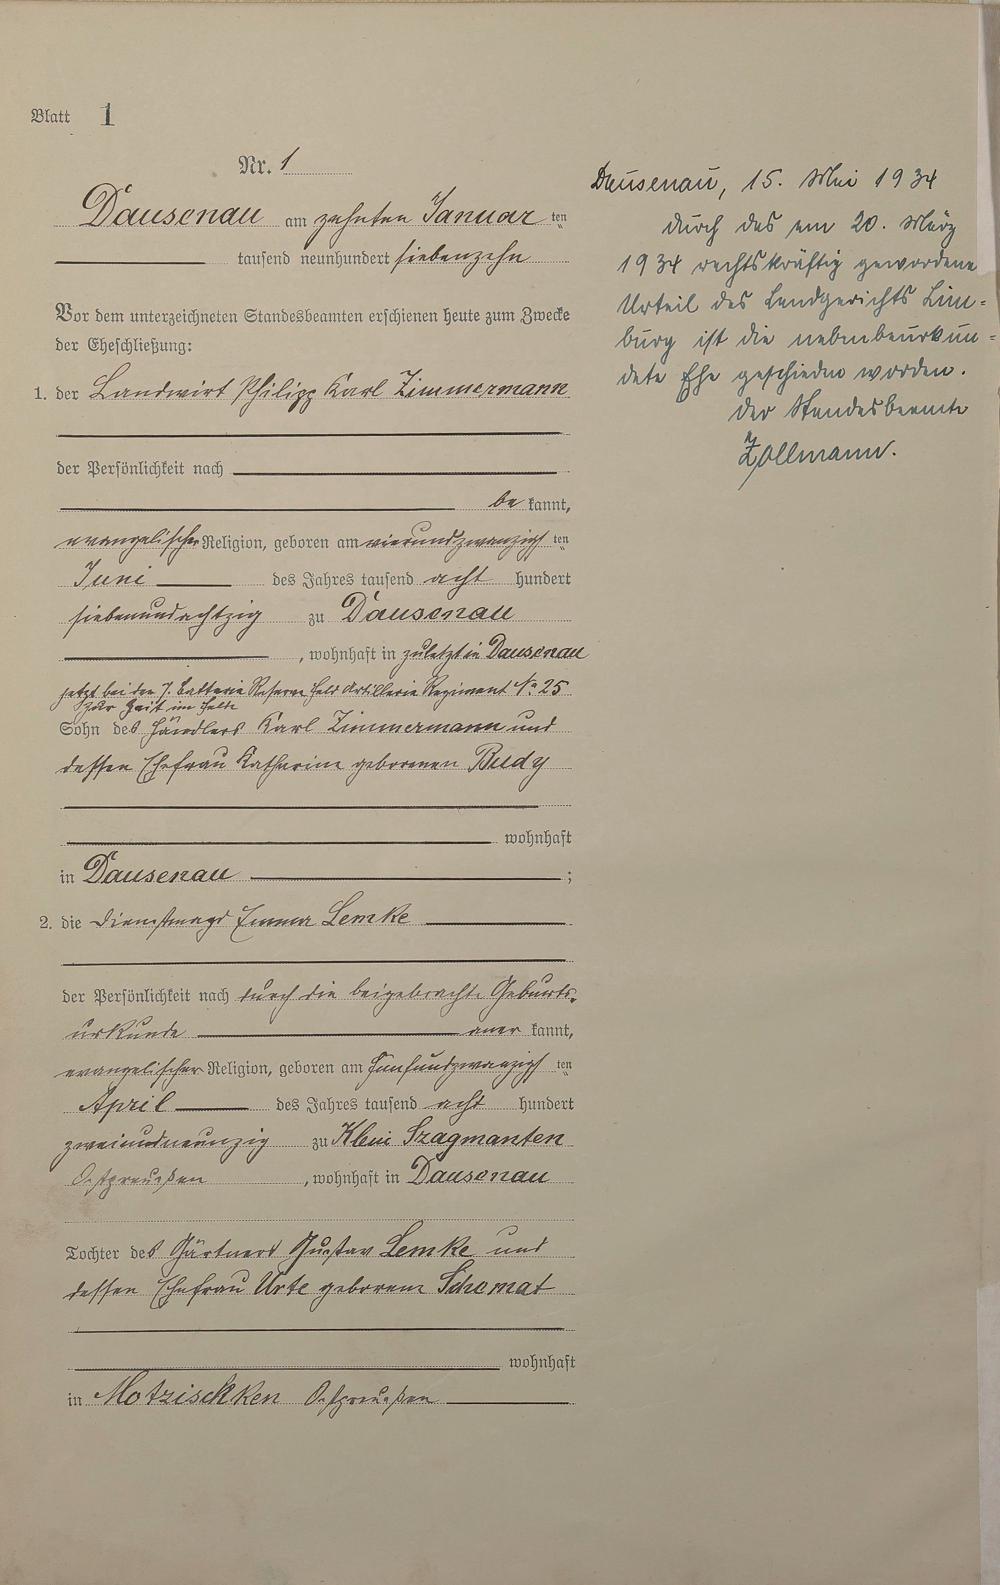 Blatt 1
Nr. 1
Dausenau am zehnten Januar ten
tausend neunhundert siebenzehn
Vor dem unterzeichneten Standesbeamten erschienen heute zum Zwecke
der Eheschließung:
1. der Landwirt Philipp Karl Zimmermann
der Persönlichkeit nach
be kannt,
evangelischer Religion, geboren am vierundzwanzigs ten
Juni des Jahres tausend acht hundert
siebenundachtzig zu Dausenau
, wohnhaft in zuletzt in Dausenau
jetzt bei der 7. Batterie Reserve Feld Artillerie Regiment No 25
zur Zeit im Felde
Sohn des Händlers Karl Zimmermann und
dessen Ehefrau Katharine geborenen Budy
wohnhaft
in Dausenau ;
2. die Dienstmagd Emma Lemke
der Persönlichkeit nach durch die beigebrachte Geburts-
urkunde aner kannt,
evangelischer Religion, geboren am fünfundzwanzigs ten
April des Jahres tausend acht hundert
zweiundneunzig zu Klein Szagmanten
Ostpreußen , wohnhaft in Dausenau
Tochter des Gärtners Gustav Lemke und
dessen Ehefrau Urte geborene Schemat
wohnhaft
in Motzischken Ostpreußen
Dausenau, 15. Mai 1934
durch das am 20. März
1934 rechtskräftig gewordene
Urteil des Landgerichts Lim-
burg ist die nebenbeurkun-
dete Ehe geschieden worden.
Der Standesbeamte
Zollmann.